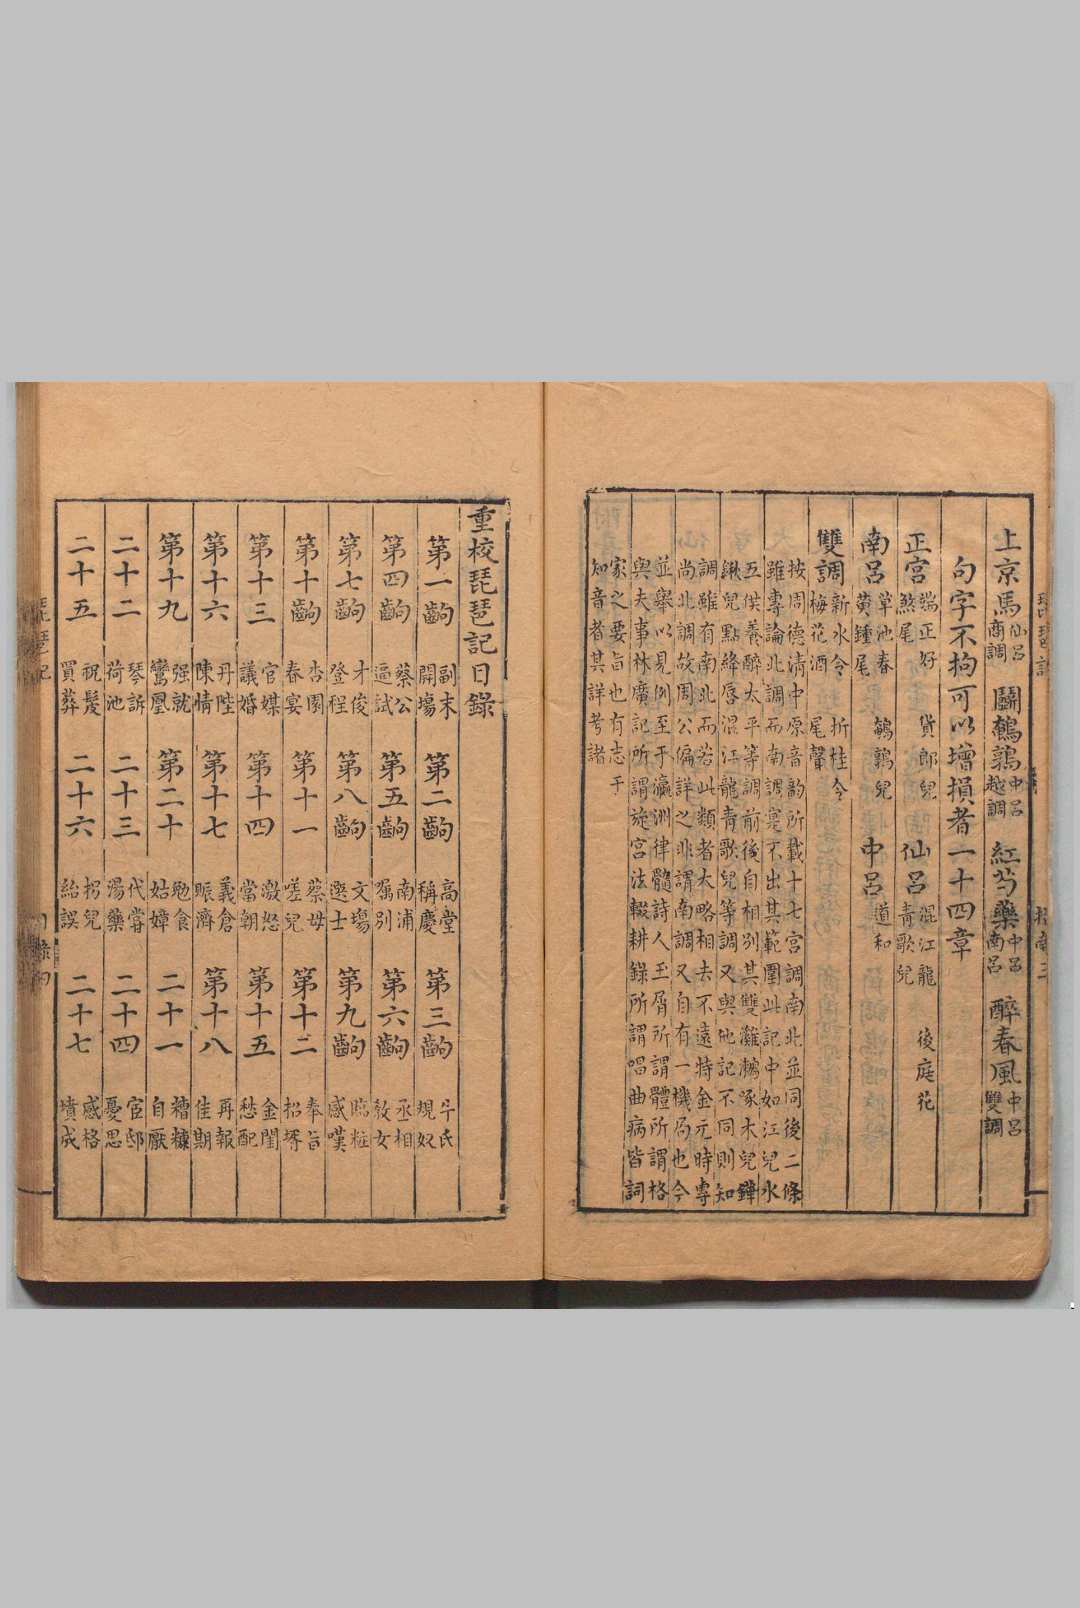 上京馬 仙呂 商調 鬬鵪鶉 中呂 越調 紅芍藥 中呂 南呂 醉春風 中呂 雙調
句字不拘可以增損者一十四章
正宮 端正好 貨郎兒 煞尾 仙呂 混江龍 後庭花 青歌兒
南呂 草池春 鵪鶉兒 黃鍾尾 中呂 道和
雙調 新水令 折桂令 梅花酒 尾聲
按周德清中原音韵所載十七宮調南北並同後二條
雖專論北調而南調寔不出其範圍此記中如江兒水
五供養醉太平等調前後自相別其雙鸂鶒啄木兒鏵
鍬兒點絳唇混江龍青歌兒等調又與他記不同則知
調雖有南北而若此類者大略相去不遠特金元時專
尚北調故周公偏詳之非謂南調又自有一機局也今
並舉以見例至于瀛洲律髓詩人玉屑所謂體所謂格
與夫事林廣記所謂旋宮法輟耕錄所謂唱曲病皆詞
家之要旨也有志于
知音者其詳考諸
重校琵琶記目錄
第一齣 副末開場 第二齣 高堂稱慶 第三齣 牛氏規奴
第四齣 蔡公逼試 第五齣 南浦囑別 第六齣 丞相教女
第七齣 才俊登程 第八齣 文場選士 第九齣 臨粧感嘆
第十齣 杏園春宴 第十一 蔡母嗟兒 第十二 奉旨招壻
第十三 官媒議婚 第十四 激怒當朝 第十五 金閨愁配
第十六 丹陛陳情 第十七 義倉賑濟 第十八 再報佳期
第十九 强就鸞凰 第二十 勉食姑嫜 二十一 糟糠自厭
二十二 琴訴荷池 二十三 代嘗湯藥 二十四 宦邸憂思
二十五 祝髮買葬 二十六 拐兒紿誤 二十七 感格墳成